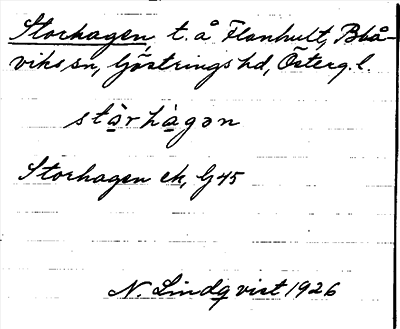 Storhagen, t. å Flanhult, Blå-
viks sn, Göstrings hd, Österg. l.
stòrhàgǝn
Storhagen ek, G 45
N. Lindqvist 1926